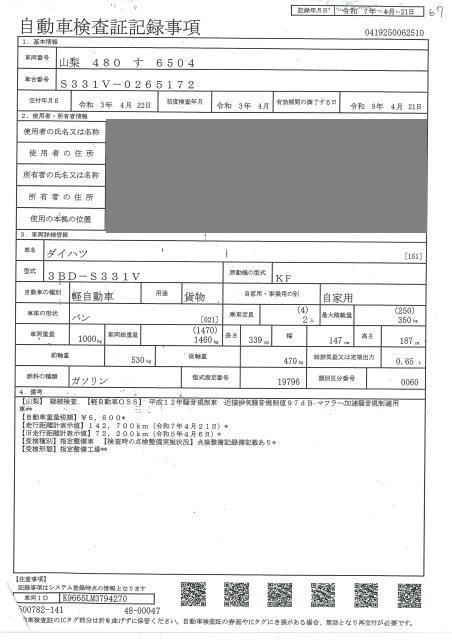 記録年月日 令和 7年 4月 21日 67
自動車検査証記録事項 0419250062510
1. 基本情報
車両番号 山梨 480 す 6504
車台番号 S331V-0265172
交付年月日 令和 3年 4月 22日 初度検査年月 令和 3年 4月 有効期間の満了する日 令和 9年 4月 21日
2. 使用者・所有者情報
使用者の氏名又は名称
使用者の住所
所有者の氏名又は名称
所有者の住所
使用の本拠の位置
3. 車両詳細情報
車名 ダイハツ [151]
型式 3BD-S331V 原動機の型式 KF
自動車の種別 軽自動車 用途 貨物 自家用・事業用の別 自家用
車体の形状 バン [021] 乗車定員 (4) 2人 最大積載量 (250) 350kg
車両重量 1000kg 車両総重量 (1470) 1460kg 長さ 339cm 幅 147cm 高さ 187cm
前軸重 530kg 後軸重 470kg 総排気量又は定格出力 0.65 L
燃料の種類 ガソリン 型式指定番号 19796 類別区分番号 0060
4. 備考
【山梨】 継続検査, 【軽自動車OSS】 平成12年騒音規制車 近接排気騒音規制値97dB マフラー加速騒音規制適用
車**
【自動車重量税額】¥6,600*
【走行距離計表示値】142,700km(令和7年4月21日)*
【旧走行距離計表示値】72,200km(令和5年4月6日)*
【受検種別】指定整備車 【検査時の点検整備実施状況】点検整備記録簿記載あり*
【受検形態】指定整備工場**
【注意事項】
記録事項はシステム登録時点の情報となります
車両ID K9665LM3794270
500782-141 48-00047
車検査証のICタグ部分は折を曲げずに保管ください。自動車検査証の券面やICタグにき損がある場合、無効となり再交付が必要です。